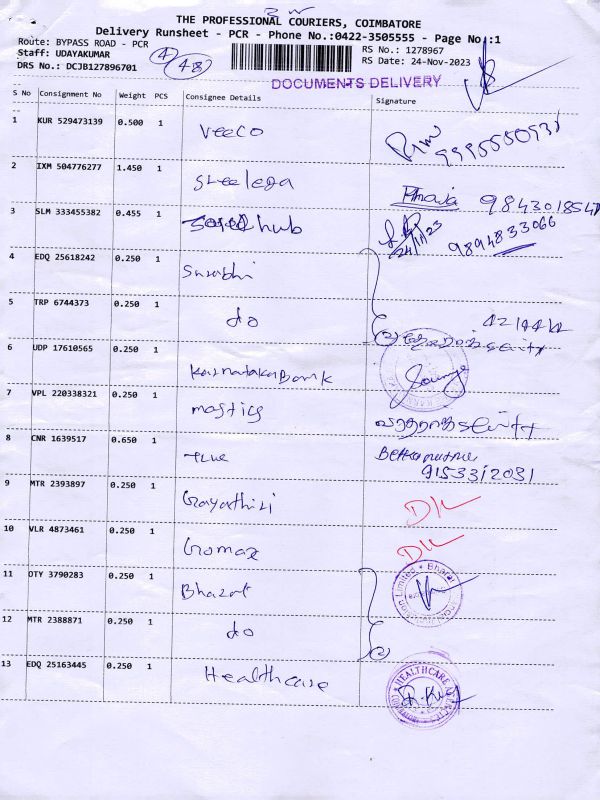 THE PROFESSIONAL COURIERS, COIMBATORE
Delivery Runsheet - PCR - Phone No.:0422-3505555 - Page No.:1
Route: BYPASS ROAD - PCR
RS No.: 1278967
Staff: UDAYAKUMAR
RS Date: 24-Nov-2023
DRS No.: DCJB127896701
48
DOCUMENTS DELIVERY
S No Consignment No Weight PCS Consignee Details Signature
1 KUR 529473139 0.500 1 Veeco
2 IXM 504776277 1.450 1
9843018547
3 SLM 333455382 0.455 1 hub
24/11/23 9894833066
4 EDQ 25618242 0.250 1 Surabhi
5 TRP 6744373 0.250 1 do
6 UDP 17610565 0.250 1 Karnataka Bank
7 VPL 220338321 0.250 1
8 CNR 1639517 0.650 1
9 MTR 2393897 0.250 1 Gayathiri
D/L
10 VLR 4873461 0.250 1 Gomax
D/L
11 OTY 3790283 0.250 1 Bharat
12 MTR 2388871 0.250 1 do
13 EDQ 25163445 0.250 1 Healthcare
HEALTHCARE